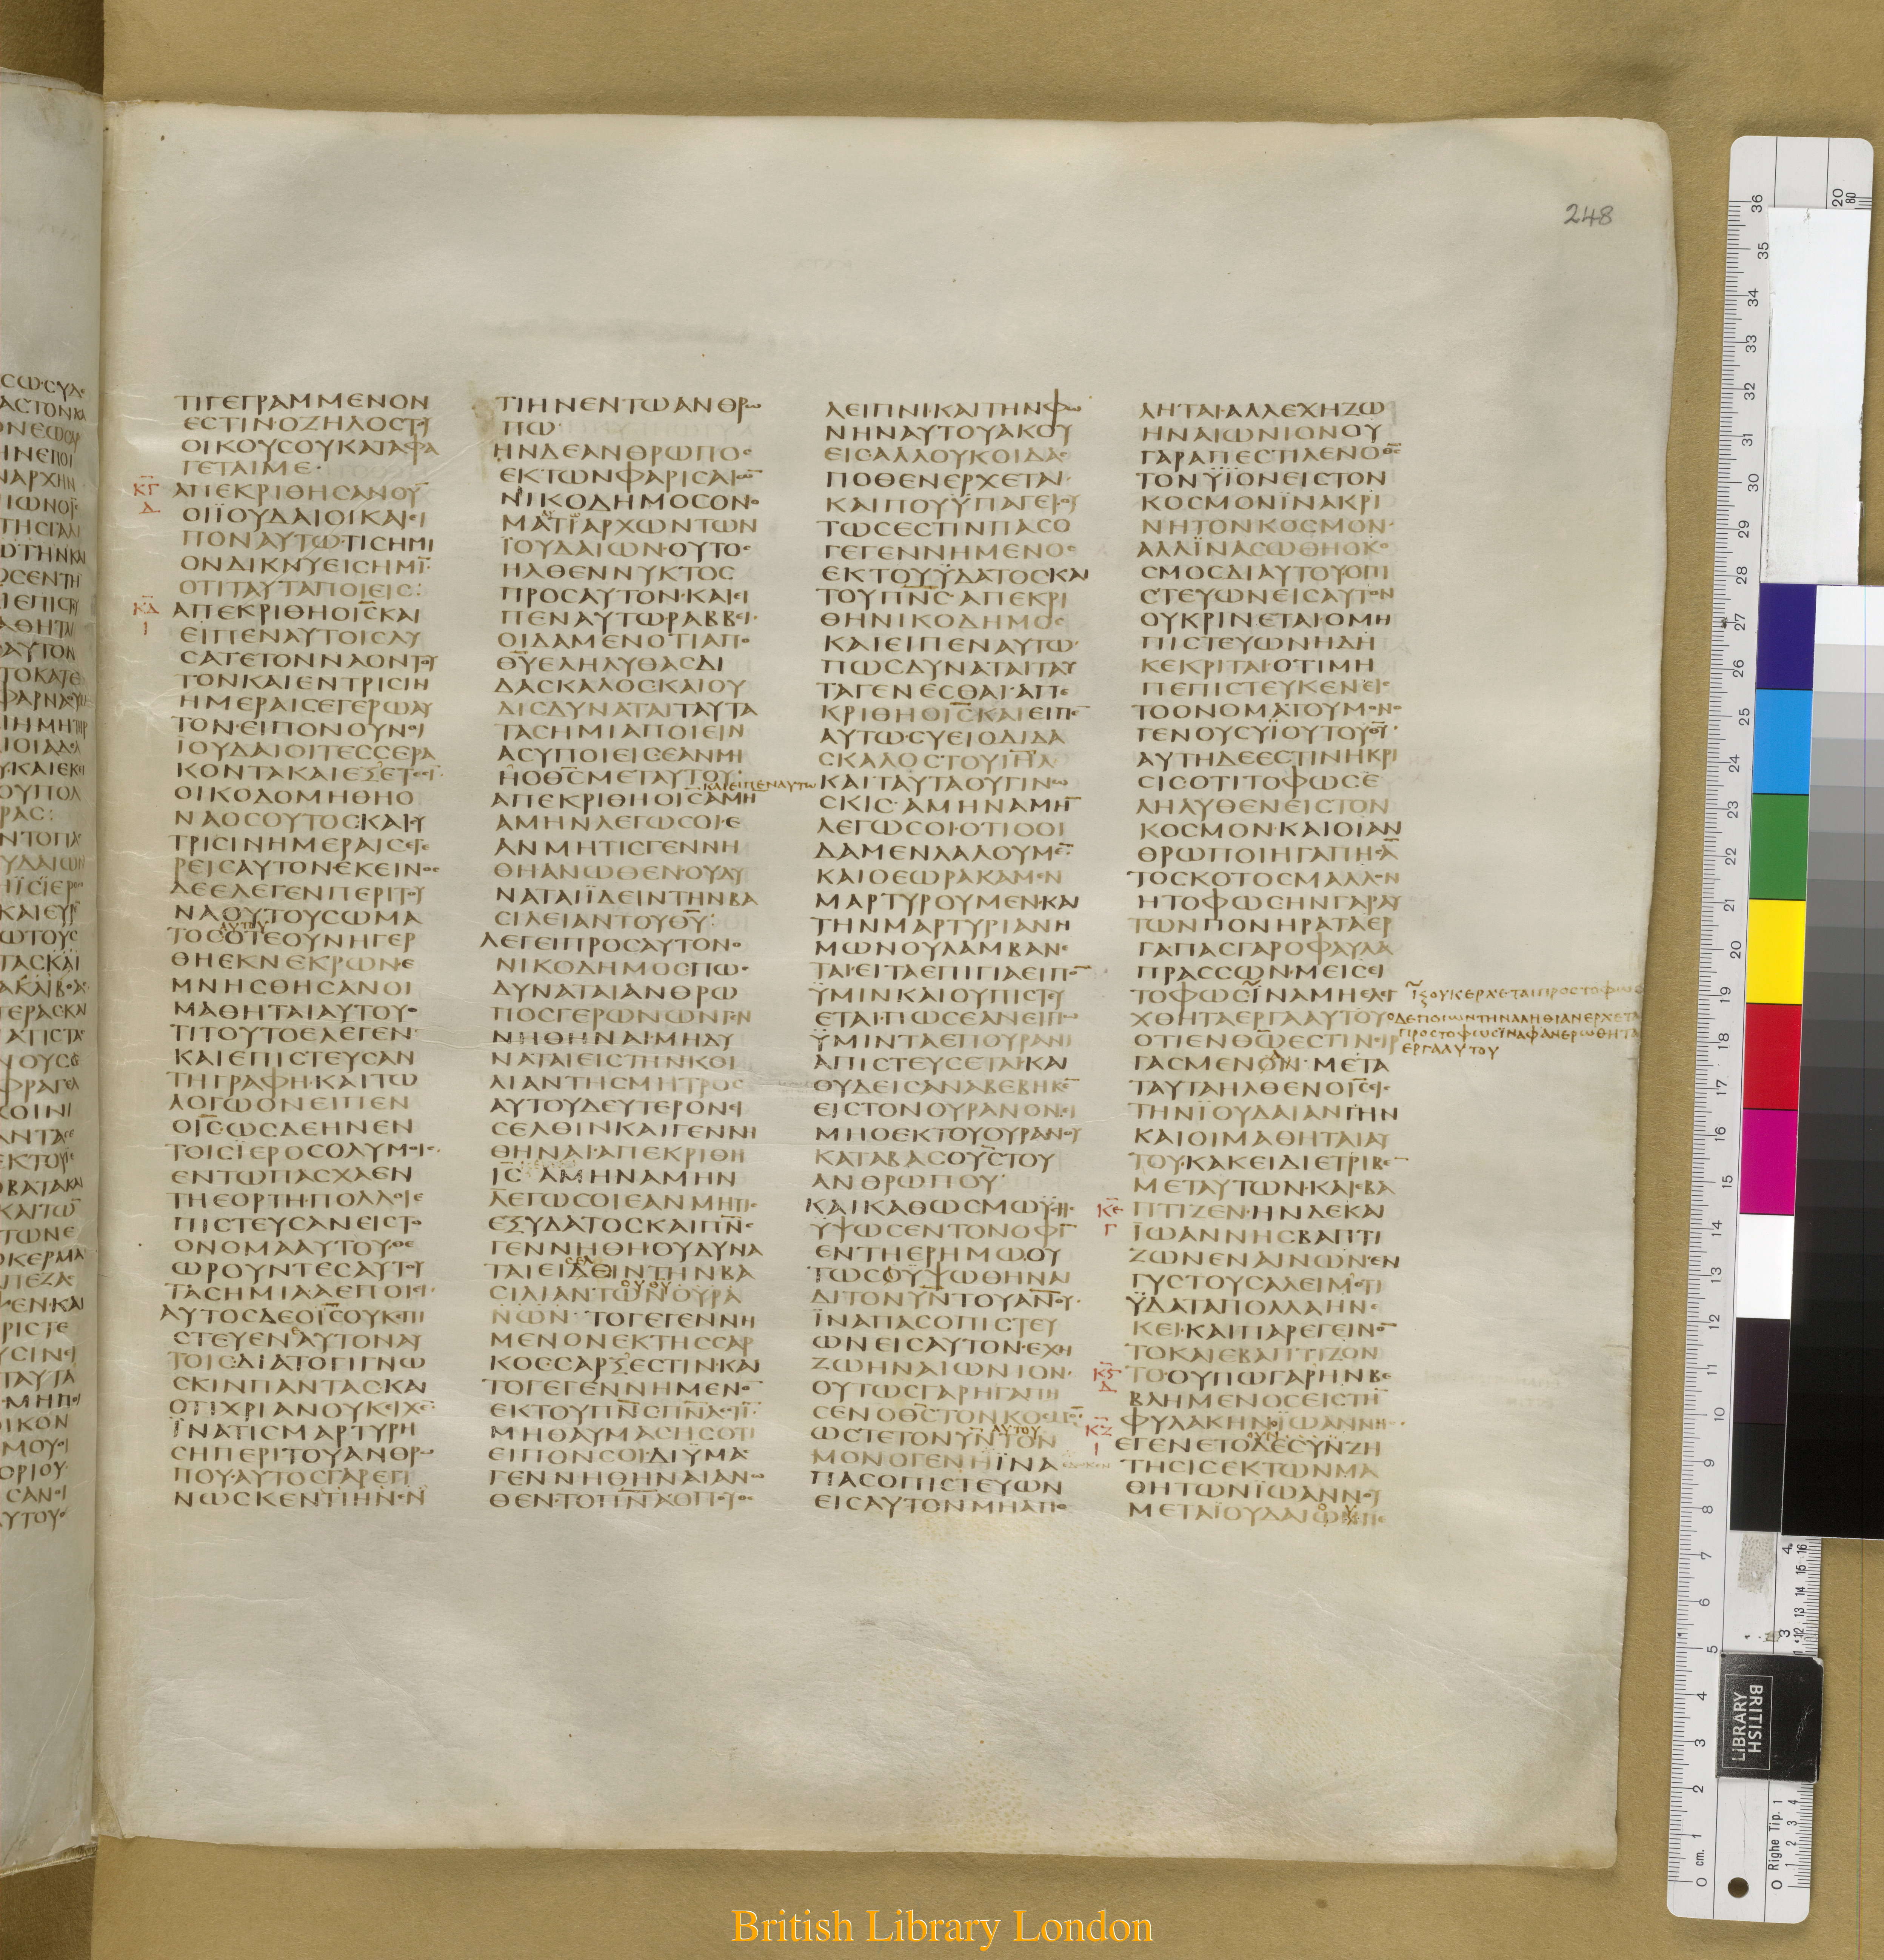 248
ΤΙΓΕΓΡΑΜΜΕΝΟΝ
ΕϹΤΙΝ·ΟΖΗΛΟϹΤΟΥ
ΟΙΚΟΥϹΟΥΚΑΤΑΦΑ
ΓΕΤΑΙΜΕ·
ΚΓ ΑΠΕΚΡΙΘΗϹΑΝΟΥ̅
Δ ΟΙΪΟΥΔΑΙΟΙΚΑΙΕΙ
ΠΟΝΑΥΤΩ·ΤΙϹΗΜΙ
ΟΝΔΙΚΝΥΕΙϹΗΜΙ̅·
ΟΤΙΤΑΥΤΑΠΟΙΕΙϹ:
ΚΔ ΑΠΕΚΡΙΘΗΟΙ̅ϹΚΑΙ
Ι ΕΙΠΕΝΑΥΤΟΙϹΛΥ
ϹΑΤΕΤΟΝΝΑΟΝΤΟΥ
ΤΟΝΚΑΙΕΝΤΡΙϹΙΝ
ΗΜΕΡΑΙϹΕΓΕΡΩΑΥ
ΤΟΝ·ΕΙΠΟΝΟΥΝΟΙ
ΙΟΥΔΑΙΟΙΤΕϹϹΕΡΑ
ΚΟΝΤΑΚΑΙΕΞΕΤΕϹΙ̅·
ΟΙΚΟΔΟΜΗΘΗΟ
ΝΑΟϹΟΥΤΟϹ·ΚΑΙϹΥ
ΤΡΙϹΙΝΗΜΕΡΑΙϹΕΓΕ
ΡΕΙϹΑΥΤΟΝΕΚΕΙΝΟϹ
ΔΕΕΛΕΓΕΝΠΕΡΙΤΟΥ
ΝΑΟΥΤΟΥϹΩΜΑ
ΑΥΤΟΥ
ΤΟϹΟΤΕΟΥΝΗΓΕΡ
ΘΗΕΚΝΕΚΡΩΝ·Ε
ΜΝΗϹΘΗϹΑΝΟΙ
ΜΑΘΗΤΑΙΑΥΤΟΥΟ
ΤΙΤΟΥΤΟΕΛΕΓΕΝ·
ΚΑΙΕΠΙϹΤΕΥϹΑΝ
ΤΗΓΡΑΦΗ·ΚΑΙΤΩ
ΛΟΓΩΟΝΕΙΠΕΝ
ΟΙ̅Ϲ·ΩϹΔΕΗΝΕΝ
ΤΟΙϹΪΕΡΟϹΟΛΥΜΟΙϹ
ΕΝΤΩΠΑϹΧΑΕΝ
ΤΗΕΟΡΤΗ·ΠΟΛΛΟΙΕ
ΠΙϹΤΕΥϹΑΝΕΙϹΤΟ
ΟΝΟΜΑΑΥΤΟΥ·ΘΕ
ΩΡΟΥΝΤΕϹΑΥΤΟΥ
ΤΑϹΗΜΙΑΑΕΠΟΙΕΙ·
ΑΥΤΟϹΔΕΟΙ̅ϹΟΥΚΕΠΙ
ϹΤΕΥΕΝΑΥΤΟΝΑΥ
ΤΟΙϹΔΙΑΤΟΓΙΓΝΩ
ϹΚΙΝΠΑΝΤΑϹ·ΚΑΙ
ΟΤΙΧΡΙΑΝΟΥΚΕΙΧΕ̅
ΪΝΑΤΙϹΜΑΡΤΥΡΗ
ϹΗΠΕΡΙΤΟΥΑΝΘΡΩ
ΠΟΥ·ΑΥΤΟϹΓΑΡΕΓΙ
ΝΩϹΚΕΝΤΙΗΝΕΝ
ΤΙΗΝΕΝΤΩΑΝΘΡΩ
ΠΩ·
ΗΝΔΕΑΝΘΡΩΠΟϹ
ΕΚΤΩΝΦΑΡΙϹΑΙΩ̅
ΝΙΚΟΔΗΜΟϹΟΝΟ
ΜΑΤΙΑΡΧΩΝΤΩΝ
ΪΟΥΔΑΙΩΝ·ΟΥΤΟϹ
ΗΛΘΕΝΝΥΚΤΟϹ
ΠΡΟϹΑΥΤΟΝ·ΚΑΙΕΙ
ΠΕΝΑΥΤΩΡΑΒΒΕΙ·
ΟΙΔΑΜΕΝΟΤΙΑΠΟ
Θ̅Υ̅ΕΛΗΛΥΘΑϹΔΙ
ΔΑϹΚΑΛΟϹ·ΚΑΙΟΥ
ΔΙϹΔΥΝΑΤΑΙΤΑΥΤΑ
ΤΑϹΗΜΙΑΠΟΙΕΙΝ
ΑϹΥΠΟΙΕΙϹΕΑΝΜΗ
ΗΟΘ̅Ϲ̅ΜΕΤΑΥΤΟΥ:
ΚΑΙΕΙΠΕΝΑΥΤΩ
ΑΠΕΚΡΙΘΗΟΙ̅Ϲ̅ΑΜΗ
ΑΜΗΝΛΕΓΩϹΟΙ·Ε
ΑΝΜΗΤΙϹΓΕΝΝΗ
ΘΗΑΝΩΘΕΝ·ΟΥΔΥ
ΝΑΤΑΙΪΔΕΙΝΤΗΝΒΑ
ϹΙΛΕΙΑΝΤΟΥΘ̅Υ̅:
ΛΕΓΕΙΠΡΟϹΑΥΤΟΝΟ
ΝΙΚΟΔΗΜΟϹ·ΠΩϹ
ΔΥΝΑΤΑΙΑΝΘΡΩ
ΠΟϹΓΕΡΩΝΩΝΓΕΝ
ΝΗΘΗΝΑΙ·ΜΗΔΥ
ΝΑΤΑΙΕΙϹΤΗΝΚΟΙ
ΛΙΑΝΤΗϹΜΗΤΡΟϹ
ΑΥΤΟΥΔΕΥΤΕΡΟΝΕΙ
ϹΕΛΘΙΝΚΑΙΓΕΝΝΗ
ΘΗΝΑΙ·ΑΠΕΚΡΙΘΗ
Ι̅Ϲ̅ ΑΜΗΝΑΜΗΝ
ΛΕΓΩϹΟΙΕΑΝΜΗΤΙϹ
ΕΞΥΔΑΤΟϹΚΑΙΠ̅Ν̅Ϲ
ΓΕΝΝΗΘΗ·ΟΥΔΥΝΑ
ΤΑΙΕΙΔΕΙΝΤΗΝΒΑ
ϹΙΛΙΑΝΤΩΝΟΥΡΑ
ΝΩΝ· ΤΟΓΕΓΕΝΝΗ
ΜΕΝΟΝΕΚΤΗϹϹΑΡ
ΚΟϹ·ϹΑΡΞΕϹΤΙΝ·ΚΑΙ
ΤΟΓΕΓΕΝΝΗΜΕΝΟ̅
ΕΚΤΟΥΠ̅Ν̅Ϲ̅Π̅Ν̅Α̅ΕϹΤΙ̅:
ΜΗΘΑΥΜΑϹΗϹΟΤΙ
ΕΙΠΟΝϹΟΙ·ΔΙΫΜΑϹ
ΓΕΝΝΗΘΗΝΑΙΑΝΩ
ΘΕΝ·ΤΟΠ̅Ν̅ΑΟΠΟΥΘΕ
ΛΕΙΠΝΙ·ΚΑΙΤΗΝΦΩ
ΝΗΝΑΥΤΟΥΑΚΟΥ
ΕΙϹΑΛΛΟΥΚΟΙΔΑϹ
ΠΟΘΕΝΕΡΧΕΤΑΙ·
ΚΑΙΠΟΥΫΠΑΓΕΙ·ΟΥ
ΤΩϹΕϹΤΙΝΠΑϹΟ
ΓΕΓΕΝΝΗΜΕΝΟϹ
ΕΚΤΟΥΫΔΑΤΟϹΚΑΙ
ΤΟΥΠ̅Ν̅Ϲ̅·ΑΠΕΚΡΙ
ΘΗΝΙΚΟΔΗΜΟϹ
ΚΑΙΕΙΠΕΝΑΥΤΩ·
ΠΩϹΔΥΝΑΤΑΙΤΑΥ
ΤΑΓΕΝΕϹΘΑΙ·ΑΠΕ
ΚΡΙΘΗΟΙ̅Ϲ̅ΚΑΙΕΙΠΕ̅
ΑΥΤΩ·ϹΥΕΙΟΔΙΔΑ
ϹΚΑΛΟϹΤΟΥΙ̅Η̅Λ
ΚΑΙΤΑΥΤΑΟΥΓΙΝΩ
ϹΚΙϹ·ΑΜΗΝΑΜΗ̅
ΛΕΓΩϹΟΙ·ΟΤΙΟΟΙ
ΔΑΜΕΝΛΑΛΟΥΜΕ̅·
ΚΑΙΟΕΩΡΑΚΑΜΕΝ
ΜΑΡΤΥΡΟΥΜΕΝ·ΚΑΙ
ΤΗΝΜΑΡΤΥΡΙΑΝΗ
ΜΩΝΟΥΛΑΜΒΑΝΕ
ΤΑΙ·ΕΙΤΑΕΠΙΓΙΑΕΙΠΟ̅
ΫΜΙΝΚΑΙΟΥΠΙϹΤΕΥ
ΕΤΑΙ·ΠΩϹΕΑΝΕΙΠΩ
ΫΜΙΝΤΑΕΠΟΥΡΑΝΙ
ΑΠΙϹΤΕΥϹΕΤΑΙ·ΚΑΙ
ΟΥΔΕΙϹΑΝΑΒΕΒΗΚΕ̅
ΕΙϹΤΟΝΟΥΡΑΝΟΝΕΙ
ΜΗΟΕΚΤΟΥΟΥΡΑΝΟΥ
ΚΑΤΑΒΑϹΟΥ̅Ϲ̅ΤΟΥ
ΑΝΘΡΩΠΟΥ·
ΚΑΙΚΑΘΩϹΜΩΫϹΗϹ
ΥΨΩϹΕΝΤΟΝΟΦΙ̅
ΕΝΤΗΕΡΗΜΩ·ΟΥ
ΤΩϹΟΥΨΩΘΗΝΑΙ
ΔΙΤΟΝΥ̅Ν̅ΤΟΥΑ̅Ν̅ΟΥ·
ΪΝΑΠΑϹΟΠΙϹΤΕΥ
ΩΝΕΙϹΑΥΤΟΝ·ΕΧΗ
ΖΩΗΝΑΙΩΝΙΟΝ·
ΟΥΤΩϹΓΑΡΗΓΑΠΗ
ϹΕΝΟΘ̅Ϲ̅ΤΟΝΚΟϹΜΟ̅
ΑΥΤΟΥ
ΩϹΤΕΤΟΝΥ̅Ν̅ΤΟΝ
ΜΟΝΟΓΕΝΗΪΝΑ
ΠΑϹΟΠΙϹΤΕΥΩΝ
ΕΙϹΑΥΤΟΝΜΗΑΠΟ
ΛΗΤΑΙ·ΑΛΛΕΧΗΖΩ
ΗΝΑΙΩΝΙΟΝΟΥ
ΓΑΡΑΠΕϹΤΙΛΕΝΟΘ̅Ϲ̅
ΤΟΝΫΙΟΝΕΙϹΤΟΝ
ΚΟϹΜΟΝΪΝΑΚΡΙ
ΝΗΤΟΝΚΟϹΜΟΝ·
ΑΛΛΪΝΑϹΩΘΗΟΚΟ
ϹΜΟϹΔΙΑΥΤΟΥΟΠΙ
ϹΤΕΥΩΝΕΙϹΑΥΤΟΝ
ΟΥΚΡΙΝΕΤΑΙ·ΟΜΗ
ΠΙϹΤΕΥΩΝΗΔΗ
ΚΕΚΡΙΤΑΙ·ΟΤΙΜΗ
ΠΕΠΙϹΤΕΥΚΕΝΕΙϹ
ΤΟΟΝΟΜΑΤΟΥΜΟΝΟ
ΓΕΝΟΥϹΥΪΟΥΤΟΥΘ̅Υ̅·
ΑΥΤΗΔΕΕϹΤΙΝΗΚΡΙ
ϹΙϹ·ΟΤΙΤΟΦΩϹΕ
ΛΗΛΥΘΕΝΕΙϹΤΟΝ
ΚΟϹΜΟΝ·ΚΑΙΟΙΑΝ
ΘΡΩΠΟΙΗΓΑΠΗϹΑ̅
ΤΟϹΚΟΤΟϹΜΑΛΛΟΝ
ΗΤΟΦΩϹΗΝΓΑΡΑΥ
ΤΩΝΠΟΝΗΡΑΤΑΕΡ
ΓΑΠΑϹΓΑΡΟΦΑΥΛΑ
ΠΡΑϹϹΩΝ·ΜΕΙϹΕΙ
ΤΟΦΩϹΪΝΑΜΗΕΛΕΓ
ΧΘΗΤΑΕΡΓΑΑΥΤΟΥ
ΟΤΙΕΝΘ̅Ω̅ΕϹΤΙΝΕΙΡ
ΓΑϹΜΕΝΟΝ· ΜΕΤΑ
ΤΑΥΤΑΗΛΘΕΝΟΙ̅Ϲ̅ΕΙϹ
ΤΗΝΪΟΥΔΑΙΑΝΓΗΝ
ΚΑΙΟΙΜΑΘΗΤΑΙΑΥ
ΤΟΥ·ΚΑΚΕΙΔΙΕΤΡΙΒΕ̅
ΜΕΤΑΥΤΩΝ·ΚΑΙΕΒΑ
ΚΕ ΠΤΙΖΕΝ·ΗΝΔΕΚΑΙ
Γ ΪΩΑΝΝΗϹΒΑΠΤΙ
ΖΩΝΕΝΑΙΝΩΝ·ΕΝ
ΓΥϹΤΟΥϹΑΛΕΙΜΟΤΙ
ΫΔΑΤΑΠΟΛΛΑΗΝΕ
ΚΕΙ·ΚΑΙΠΑΡΕΓΕΙΝΟ̅
ΤΟΚΑΙΕΒΑΠΤΙΖΟΝ
ΚϚ ΤΟ·ΟΥΠΩΓΑΡΗΝΒΕ
Δ ΒΛΗΜΕΝΟϹΕΙϹΤΗ̅
ΚΖ ΦΥΛΑΚΗΝΪΩΑΝΝΗϹ·
Ι ΕΓΕΝΕΤΟΔΕϹΥΝΖΗ
ΤΗϹΙϹΕΚΤΩΝΜΑ
ΘΗΤΩΝΪΩΑΝΝΟΥ
ΜΕΤΑΪΟΥΔΑΙΩΝΠΕ
ΟΥΚΕΡΧΕΤΑΙΠΡΟϹΤΟΦΩϹ
ΟΔΕΠΟΙΩΝΤΗΝΑΛΗΘΙΑΝΕΡΧΕΤΑΙ
ΠΡΟϹΤΟΦΩϹΪΝΑΦΑΝΕΡΩΘΗΤΑ
ΕΡΓΑΑΥΤΟΥ
BRITISH
LIBRARY
British Library London